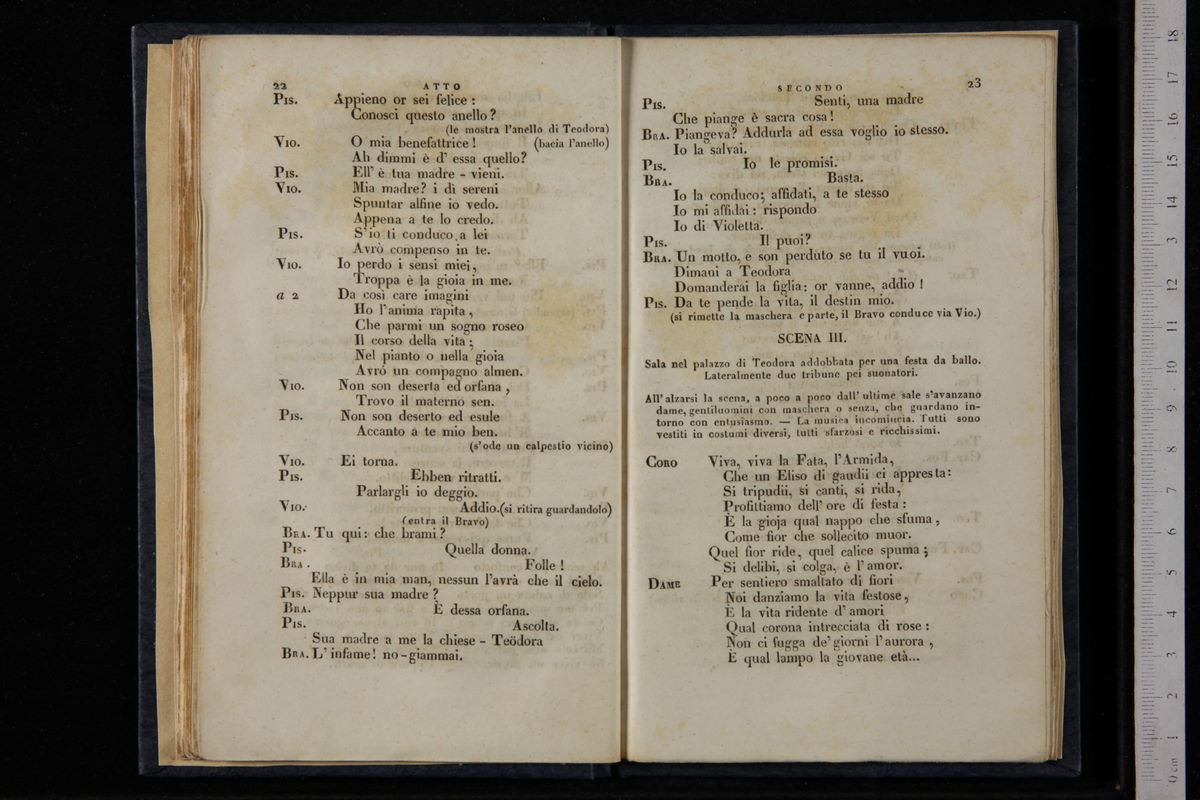 22
ATTO
Pis. Appieno or sei felice :
Conosci questo anello ?
(le mostra l'anello di Teodora)
Vio. O mia benefattrice ! (bacia l'anello)
Ah dimmi è d' essa quello?
Pis. Ell' è tua madre - vieni.
Vio. Mia madre? i dì sereni
Spuntar alfine io vedo.
Appena a te lo credo.
Pis. S' io ti conduco a lei
Avrò compenso in te.
Vio. Io perdo i sensi miei,
Troppa è la gioia in me.
a 2 Da così care imagini
Ho l'anima rapita ,
Che parmi un sogno roseo
Il corso della vita ;
Nel pianto o nella gioia
Avrò un compagno almen.
Vio. Non son deserta ed orfana ,
Trovo il materno sen.
Pis. Non son deserto ed esule
Accanto a te mio ben.
(s'ode un calpestio vicino)
Vio. Ei torna.
Pis. Ebben ritratti.
Parlargli io deggio.
Vio. Addio.(si ritira guardandolo)
(entra il Bravo)
Bra. Tu qui: che brami ?
Pis. Quella donna.
Bra. Folle !
Ella è in mia man, nessun l'avrà che il cielo.
Pis. Neppur sua madre ?
Bra. È dessa orfana.
Pis. Ascolta.
Sua madre a me la chiese - Teödora
Bra. L' infame! no - giammai.
SECONDO
23
Pis. Senti, una madre
Che piange è sacra cosa !
Bra. Piangeva? Addurla ad essa voglio io stesso.
Io la salvai.
Pis. Io le promisi.
Bra. Basta.
Io la conduco; affidati, a te stesso
Io mi affidai : rispondo
Io di Violetta.
Pis. Il puoi?
Bra. Un motto, e son perduto se tu il vuoi.
Dimani a Teodora
Domanderai la figlia: or vanne, addio !
Pis. Da te pende la vita, il destin mio.
(si rimette la maschera e parte, il Bravo conduce via Vio.)
SCENA III.
Sala nel palazzo di Teodora addobbata per una festa da ballo.
Lateralmente due tribune pei suonatori.
All' alzarsi la scena, a poco a poco dall' ultime sale s'avanzano
dame, gentiluomini con maschera o senza, che guardano in-
torno con entusiasmo. — La musica incomincia. Tutti sono
vestiti in costumi diversi, tutti sfarzosi e ricchissimi.
Coro Viva, viva la Fata, l'Armida,
Che un Eliso di gaudii ci appresta:
Si tripudii, si canti, si rida,
Profittiamo dell' ore di festa :
È la gioja qual nappo che sfuma ,
Come fior che sollecito muor.
Quel fior ride, quel calice spuma ;
Si delibi, si colga, è l' amor.
Dame Per sentiero smaltato di fiori
Noi danziamo la vita festose,
È la vita ridente d' amori
Qual corona intrecciata di rose :
Non ci fugga de' giorni l'aurora ,
È qual lampo la giovane età...
0 cm 1 2 3 4 5 6 7 8 9 10 11 12 13 14 15 16 17 18